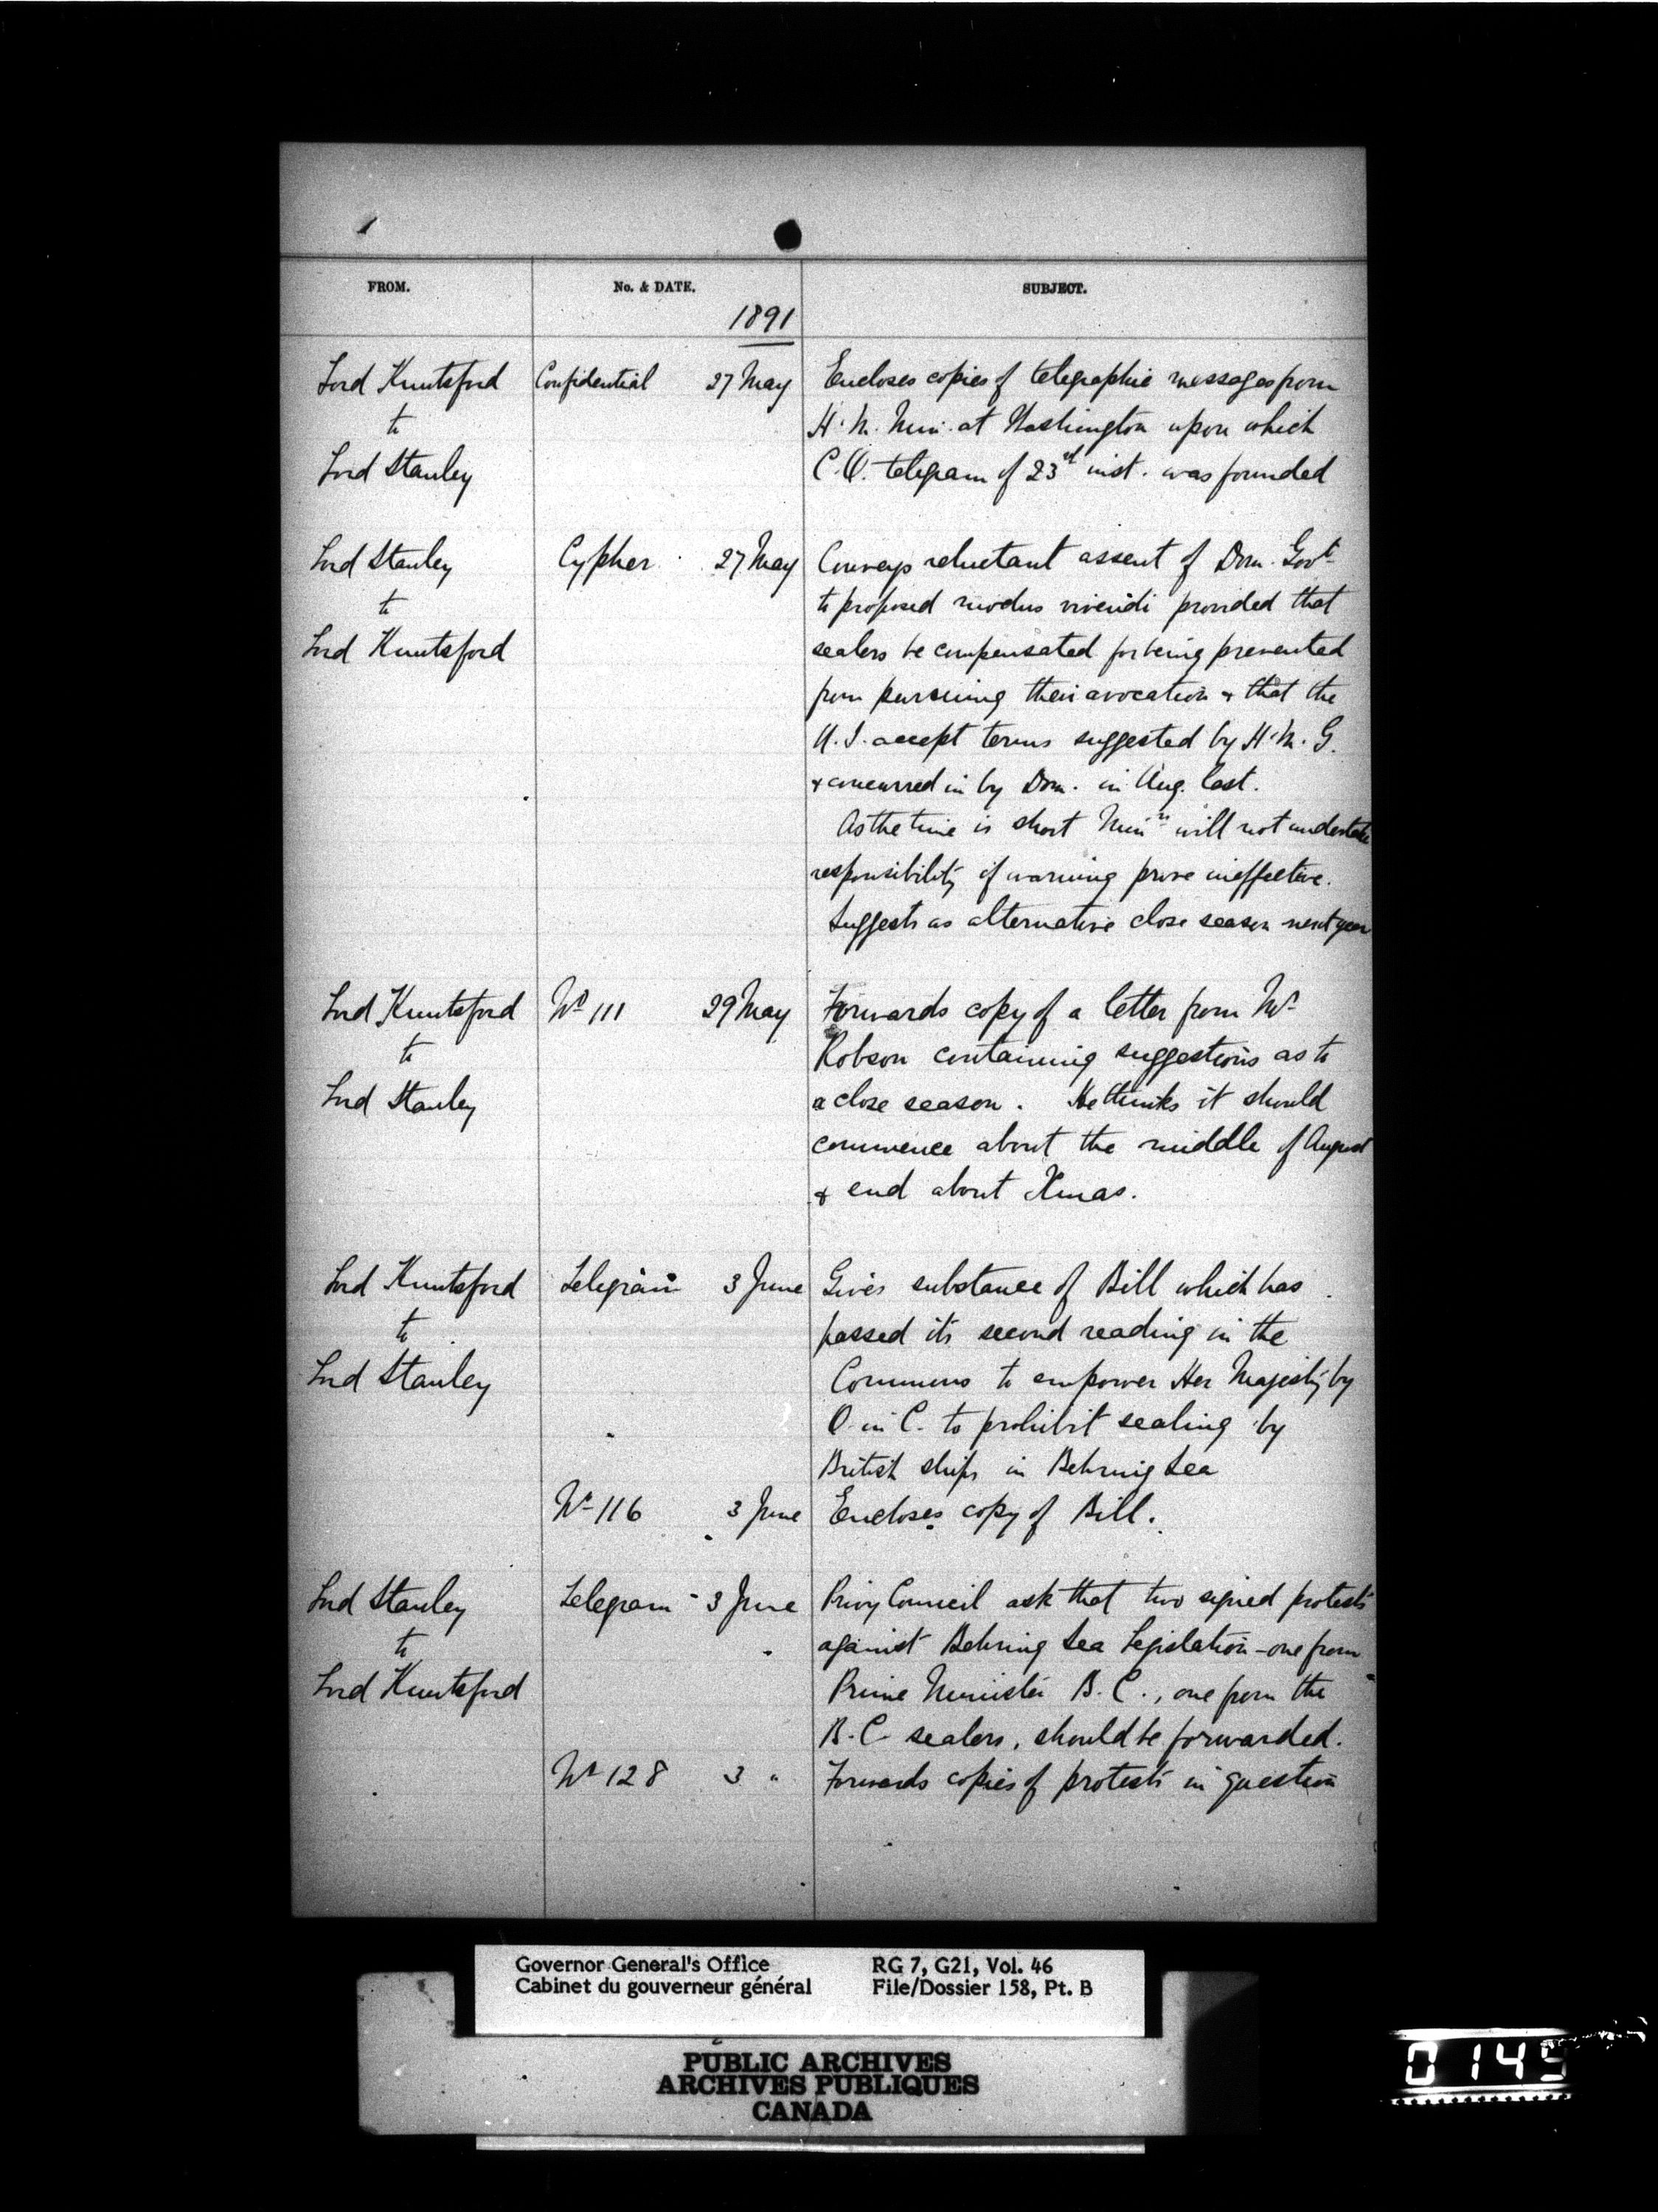 1
FROM. No. & DATE. SUBJECT.
1891
Lord Knutsford Confidential 27 May Encloses copies of telegraphic messages from
to H. M. Min. at Washington upon which
Lord Stanley C.O. telegram of 23rd inst. was founded
Lord Stanley Cypher 27 May Conveys reluctant assent of Dom. Govt
to to proposed modus vivendi provided that
Lord Knutsford sealers be compensated for being prevented
from pursuing their avocation & that the
U.S. accept terms suggested by H.M.G.
& concurred in by Dom. in Aug. last.
As the time is short Minrs will not undertake
responsibility if warning prove ineffective.
Suggests as alternative close season next year
Lord Knutsford No 111 29 May Forwards copy of a letter from Mr
to Robson containing suggestions as to
Lord Stanley a close season. He thinks it should
commence about the middle of August
& end about Xmas.
Lord Knutsford Telegram 3 June Gives substance of Bill which has
to passed its second reading in the
Lord Stanley Commons to empower Her Majesty by
O. in C. to prohibit sealing by
British ships in Behring Sea
No 116 3 June Encloses copy of Bill.
Lord Stanley Telegram 3 June Privy Council ask that two signed protests
to against Behring Sea Legislation - one from
Lord Knutsford Prime Minister B.C., one from the
B.C. sealers, should be forwarded.
No 128 3 " Forwards copies of protests in question
Governor General's Office RG 7, G21, Vol. 46
Cabinet du gouverneur général File/Dossier 158, Pt. B
PUBLIC ARCHIVES
ARCHIVES PUBLIQUES
CANADA
0145